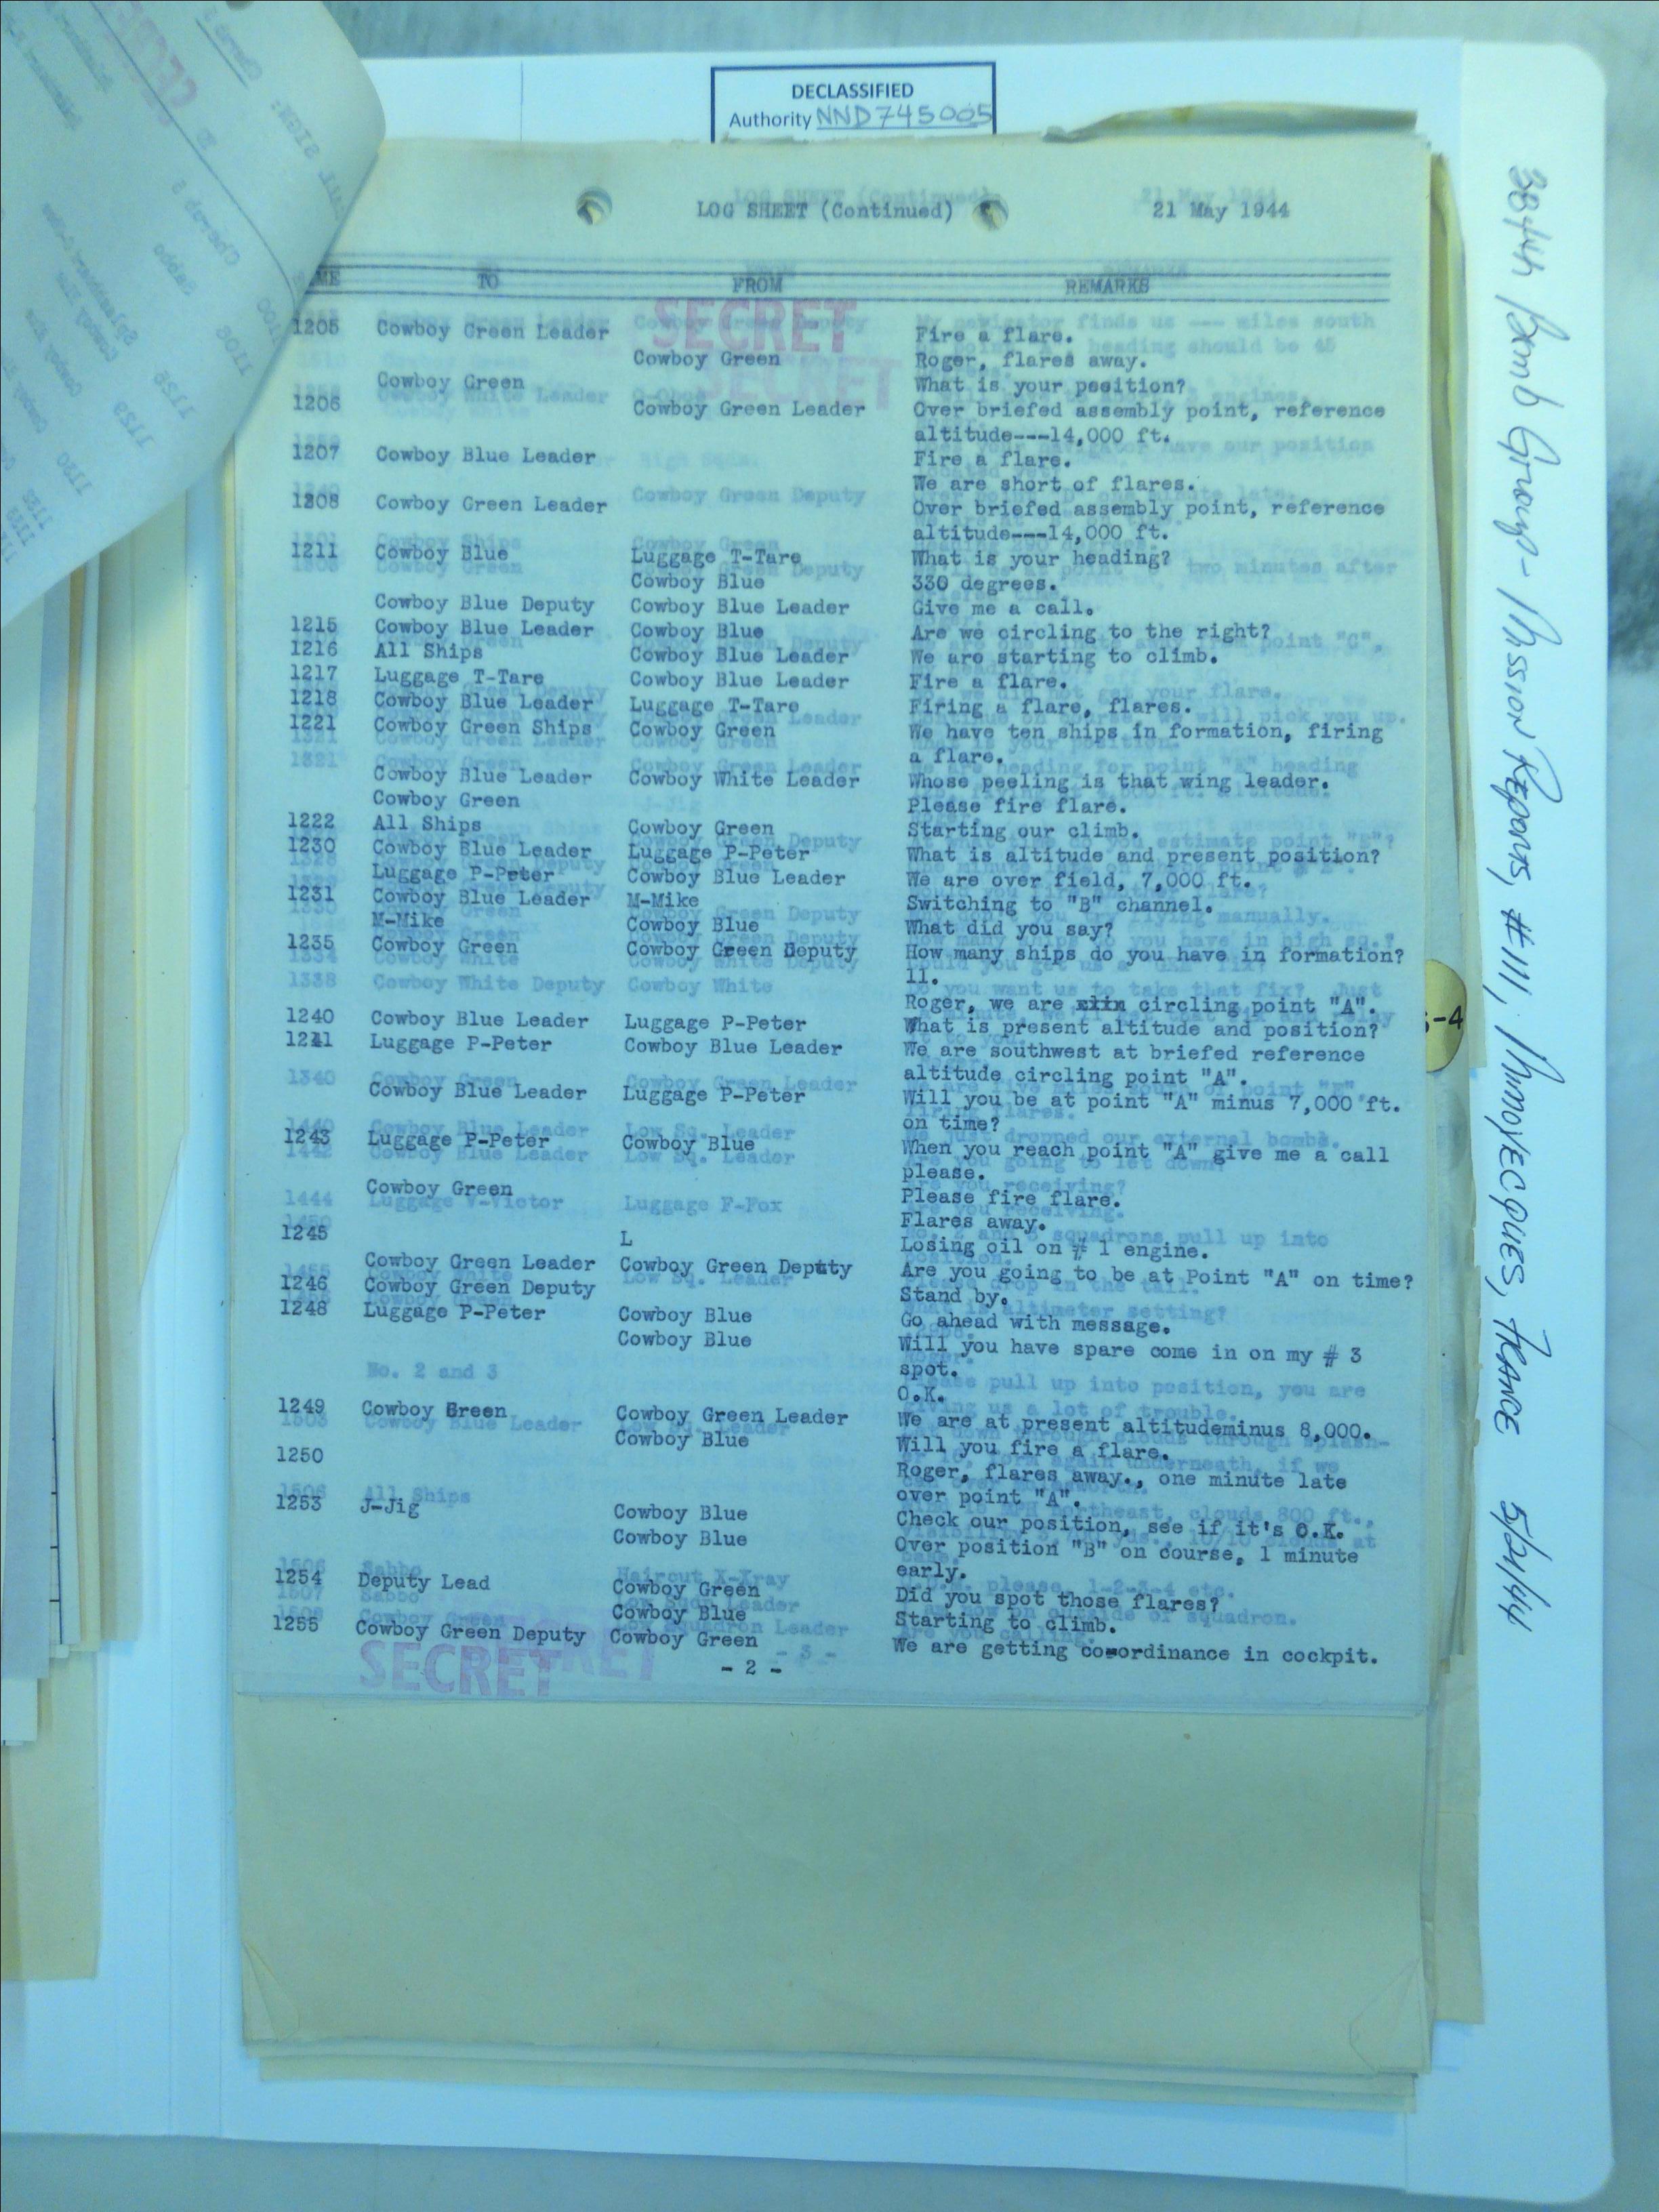 DECLASSIFIED
Authority NND745005
LOG SHEET (Continued) 21 May 1944
TO FROM REMARKS
SECRET
1205 Cowboy Green Leader Fire a flare.
Cowboy Green Roger, flares away.
Cowboy Green What is your position?
1206 Cowboy Green Leader Over briefed assembly point, reference
altitude---14,000 ft.
1207 Cowboy Blue Leader Fire a flare.
We are short of flares.
1208 Cowboy Green Leader Over briefed assembly point, reference
altitude---14,000 ft.
1211 Cowboy Blue Luggage T-Tare What is your heading?
Cowboy Blue 330 degrees.
Cowboy Blue Deputy Cowboy Blue Leader Give me a call.
1215 Cowboy Blue Leader Cowboy Blue Are we circling to the right?
1216 All Ships Cowboy Blue Leader We are starting to climb.
1217 Luggage T-Tare Cowboy Blue Leader Fire a flare.
1218 Cowboy Blue Leader Luggage T-Tare Firing a flare, flares.
1221 Cowboy Green Ships Cowboy Green We have ten ships in formation, firing
a flare.
Cowboy Blue Leader Cowboy White Leader Whose peeling is that wing leader.
Cowboy Green Please fire flare.
1222 All Ships Cowboy Green Starting our climb.
1230 Cowboy Blue Leader Luggage P-Peter What is altitude and present position?
Luggage P-Peter Cowboy Blue Leader We are over field, 7,000 ft.
1231 Cowboy Blue Leader M-Mike Switching to "B" channel.
M-Mike Cowboy Blue What did you say?
1235 Cowboy Green Cowboy Green Deputy How many ships do you have in formation?
11.
Roger, we are circling point "A".
1240 Cowboy Blue Leader Luggage P-Peter What is present altitude and position?
1241 Luggage P-Peter Cowboy Blue Leader We are southwest at briefed reference
altitude circling point "A".
Cowboy Blue Leader Luggage P-Peter Will you be at point "A" minus 7,000 ft.
on time?
1243 Luggage P-Peter Cowboy Blue When you reach point "A" give me a call
please.
Cowboy Green Please fire flare.
Flares away.
1245 L Losing oil on # 1 engine.
Cowboy Green Leader Cowboy Green Deputy Are you going to be at Point "A" on time?
1246 Cowboy Green Deputy Stand by.
1248 Luggage P-Peter Cowboy Blue Go ahead with message.
Cowboy Blue Will you have spare come in on my # 3
spot.
O.K.
1249 Cowboy Green Cowboy Green Leader We are at present altitudeminus 8,000.
Cowboy Blue Will you fire a flare.
1250 Roger, flares away., one minute late
over point "A".
1253 J-Jig Cowboy Blue Check our position, see if it's O.K.
Cowboy Blue Over position "B" on course, 1 minute
early.
1254 Deputy Lead Cowboy Green Did you spot those flares?
Cowboy Blue Starting to climb.
1255 Cowboy Green Deputy Cowboy Green We are getting co-ordinance in cockpit.
SECRET
- 2 -
384th Bomb Group - Mission Reports, #111, Mimoyecques, France 5/21/44
-4